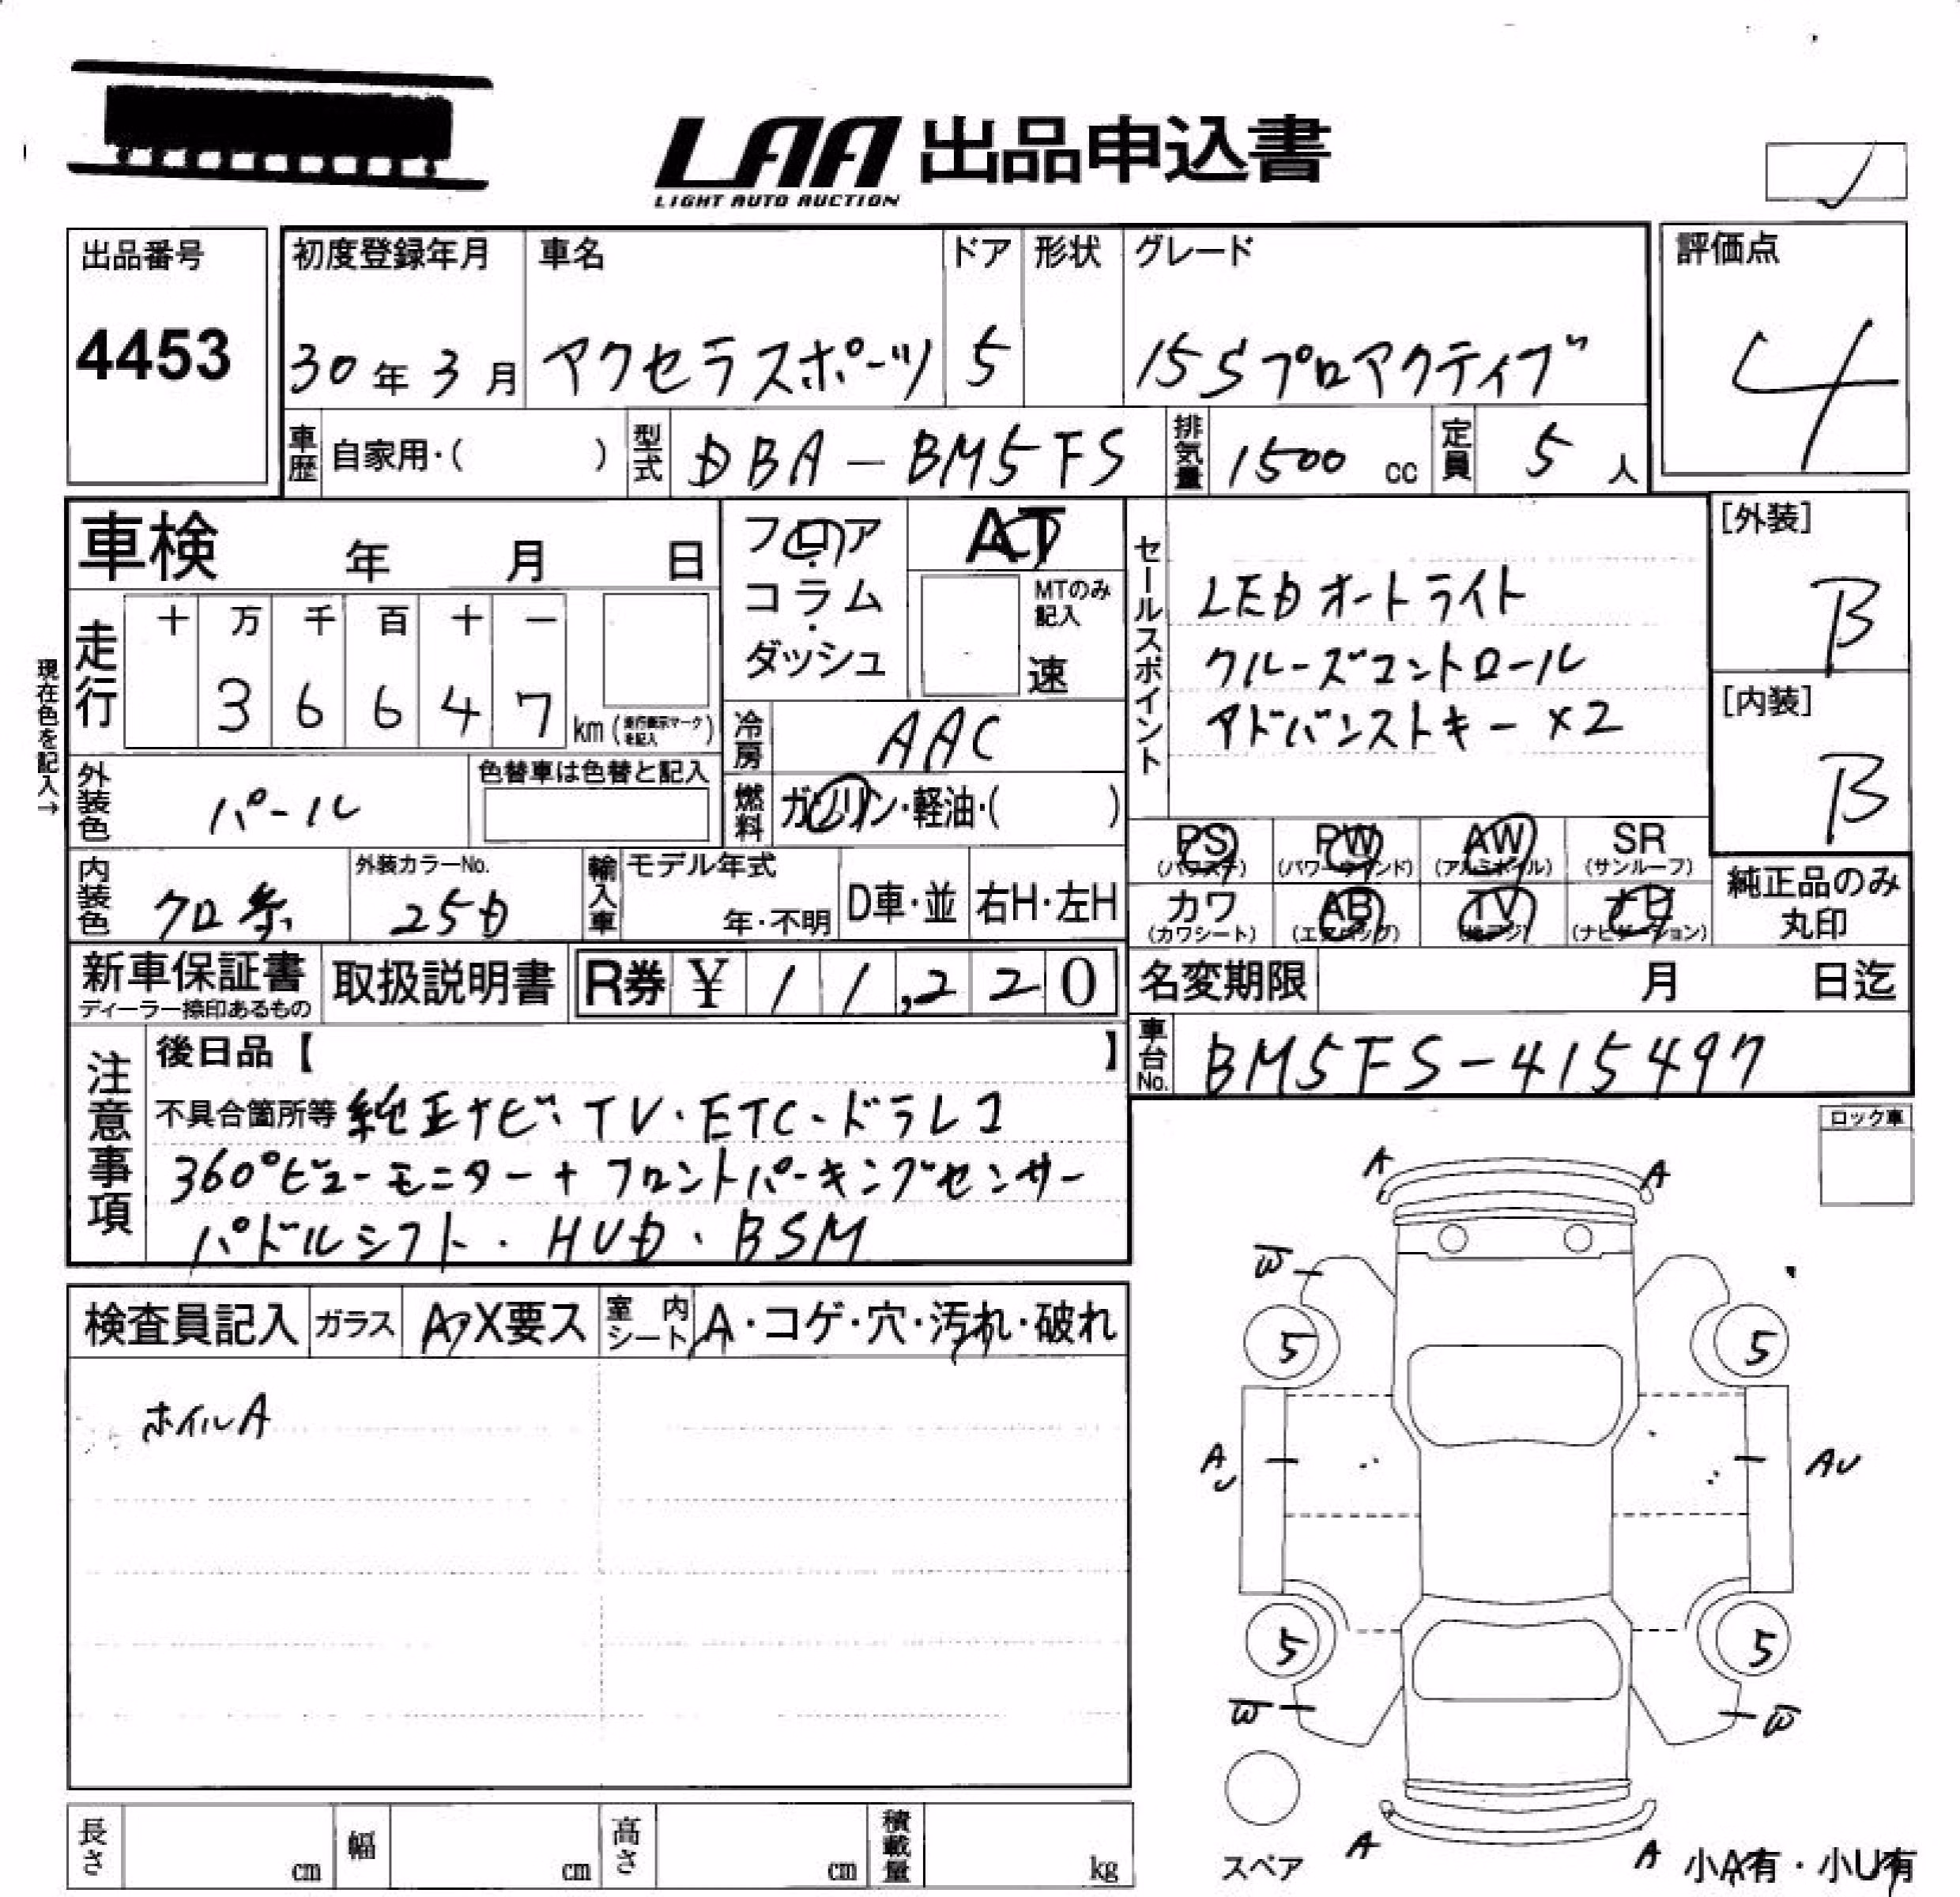 LAA 出品申込書
LIGHT AUTO AUCTION
出品番号 初度登録年月 車名 ドア 形状 グレード 評価点
4453 30年3月 アクセラスポーツ 5 15Sプロアクティブ 4
車歴 自家用・( ) 型式 DBA-BM5FS 排気量 1500cc 定員 5人
車検 年 月 日 フロア AT セールスポイント [外装]
コラム MTのみ記入 LEDオートライト B
ダッシュ 速 クルーズコントロール
走行 十 万 千 百 十 一 アドバンストキー×2 [内装]
3 6 6 4 7 km (走行表示マークを記入) 冷房 AAC B
現在色を記入→
外装色 パール 色替車は色替と記入 燃料 ガソリン・軽油・( )
PS (パワステ) PW (パワーウインド) AW (アルミホイル) SR (サンルーフ)
内装色 クロ系 外装カラーNo. 25D 輸入車 モデル年式 年・不明 D車・並 右H・左H
カワ (カワシート) AB (エアバッグ) TV (地デジ) ナビ (ナビゲーション) 純正品のみ丸印
新車保証書 ディーラー捺印あるもの 取扱説明書 R券 ¥11,220 名変期限 月 日迄
車台No. BM5FS-415497
注意事項 後日品【 】
不具合箇所等 純正ナビ・TV・ETC・ドラレコ
360°ビューモニター+フロントパーキングセンサー
パドルシフト・HUD・BSM
ロック車
A A
W
検査員記入 ガラス A・X要ス 室内シート A・コゲ・穴・汚れ・破れ
5 5
ホイルA
AU AU
5 5
W W
スペア A A 小A有・小U有
長さ cm 幅 cm 高さ cm 積載量 kg